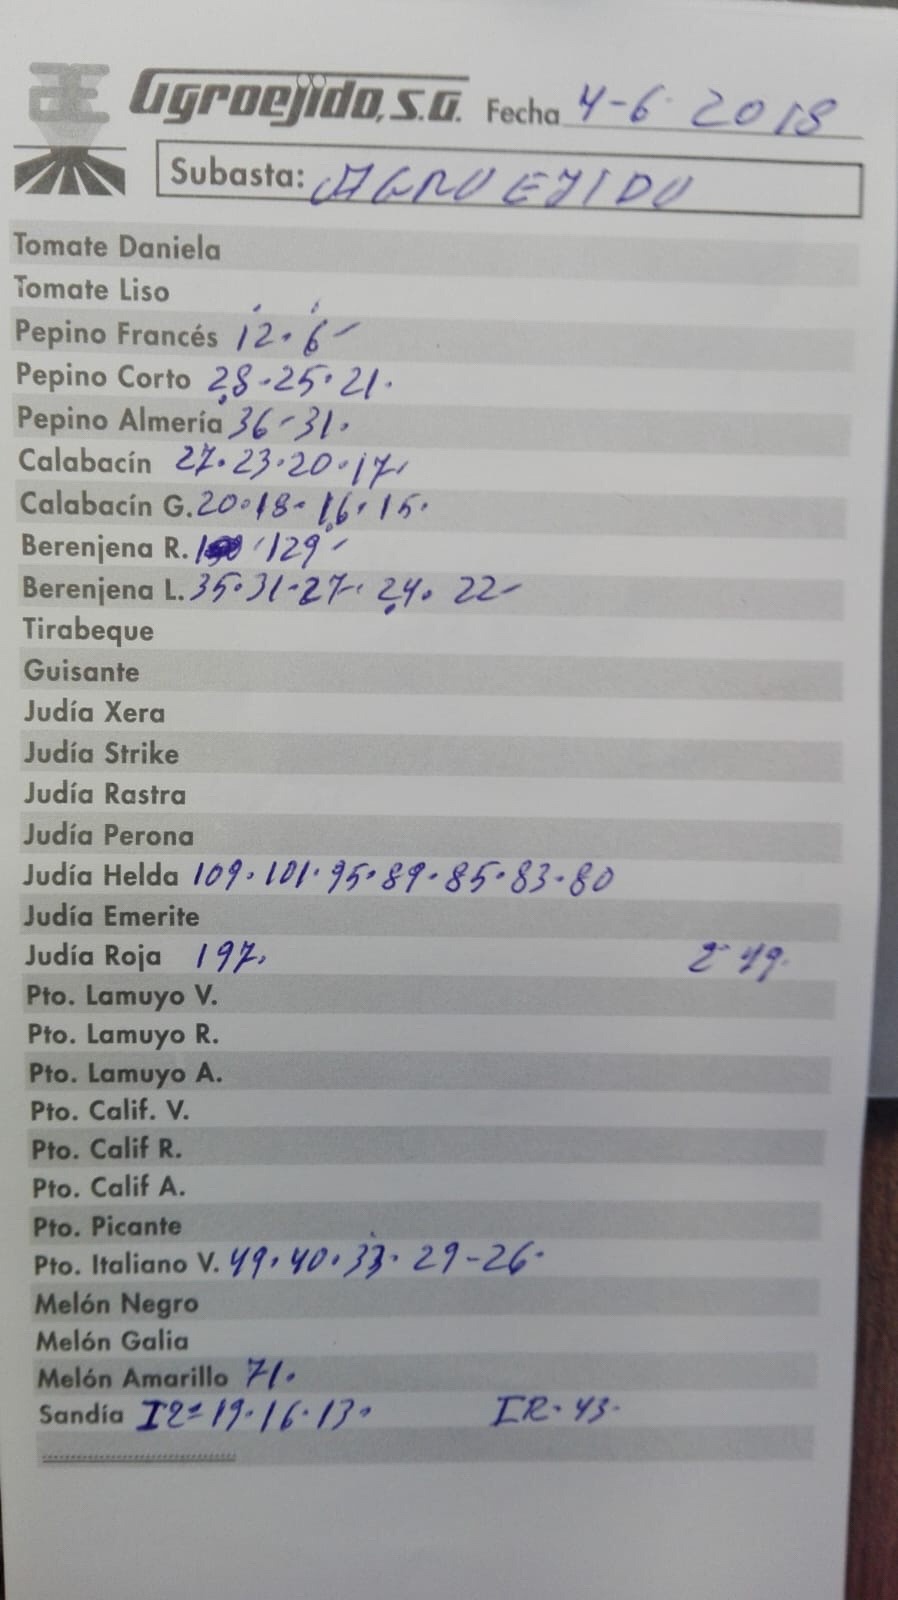 Agroejido, S.A. Fecha 4-6-2018
Subasta: AGROEJIDO
Tomate Daniela
Tomate Liso
Pepino Francés 12. 6-
Pepino Corto 28-25.21.
Pepino Almería 36-31.
Calabacín 27.23.20.17.
Calabacín G. 20.18-16.15.
Berenjena R. 129-
Berenjena L. 35.31-27. 24. 22-
Tirabeque
Guisante
Judía Xera
Judía Strike
Judía Rastra
Judía Perona
Judía Helda 109.101.95.89.85.83.80
Judía Emerite
Judía Roja 197. 2ª 49.
Pto. Lamuyo V.
Pto. Lamuyo R.
Pto. Lamuyo A.
Pto. Calif. V.
Pto. Calif R.
Pto. Calif A.
Pto. Picante
Pto. Italiano V. 49.40.33. 29-26.
Melón Negro
Melón Galia
Melón Amarillo 71.
Sandía 19.16.13. IR. 43.